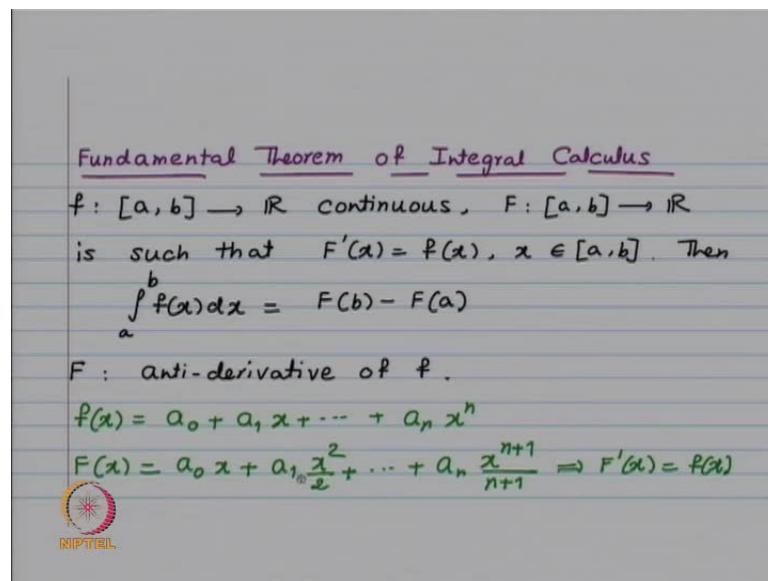 Fundamental Theorem of Integral Calculus
f : [a, b] → ℝ continuous, F : [a, b] → ℝ
is such that F'(x) = f(x), x ∈ [a, b]. Then
∫_a^b f(x) dx = F(b) - F(a)
F : anti-derivative of f.
f(x) = a_0 + a_1 x + ⋯ + a_n x^n
F(x) = a_0 x + a_1 x^2/2 + ⋯ + a_n x^{n+1}/(n+1) ⇒ F'(x) = f(x)
NPTEL